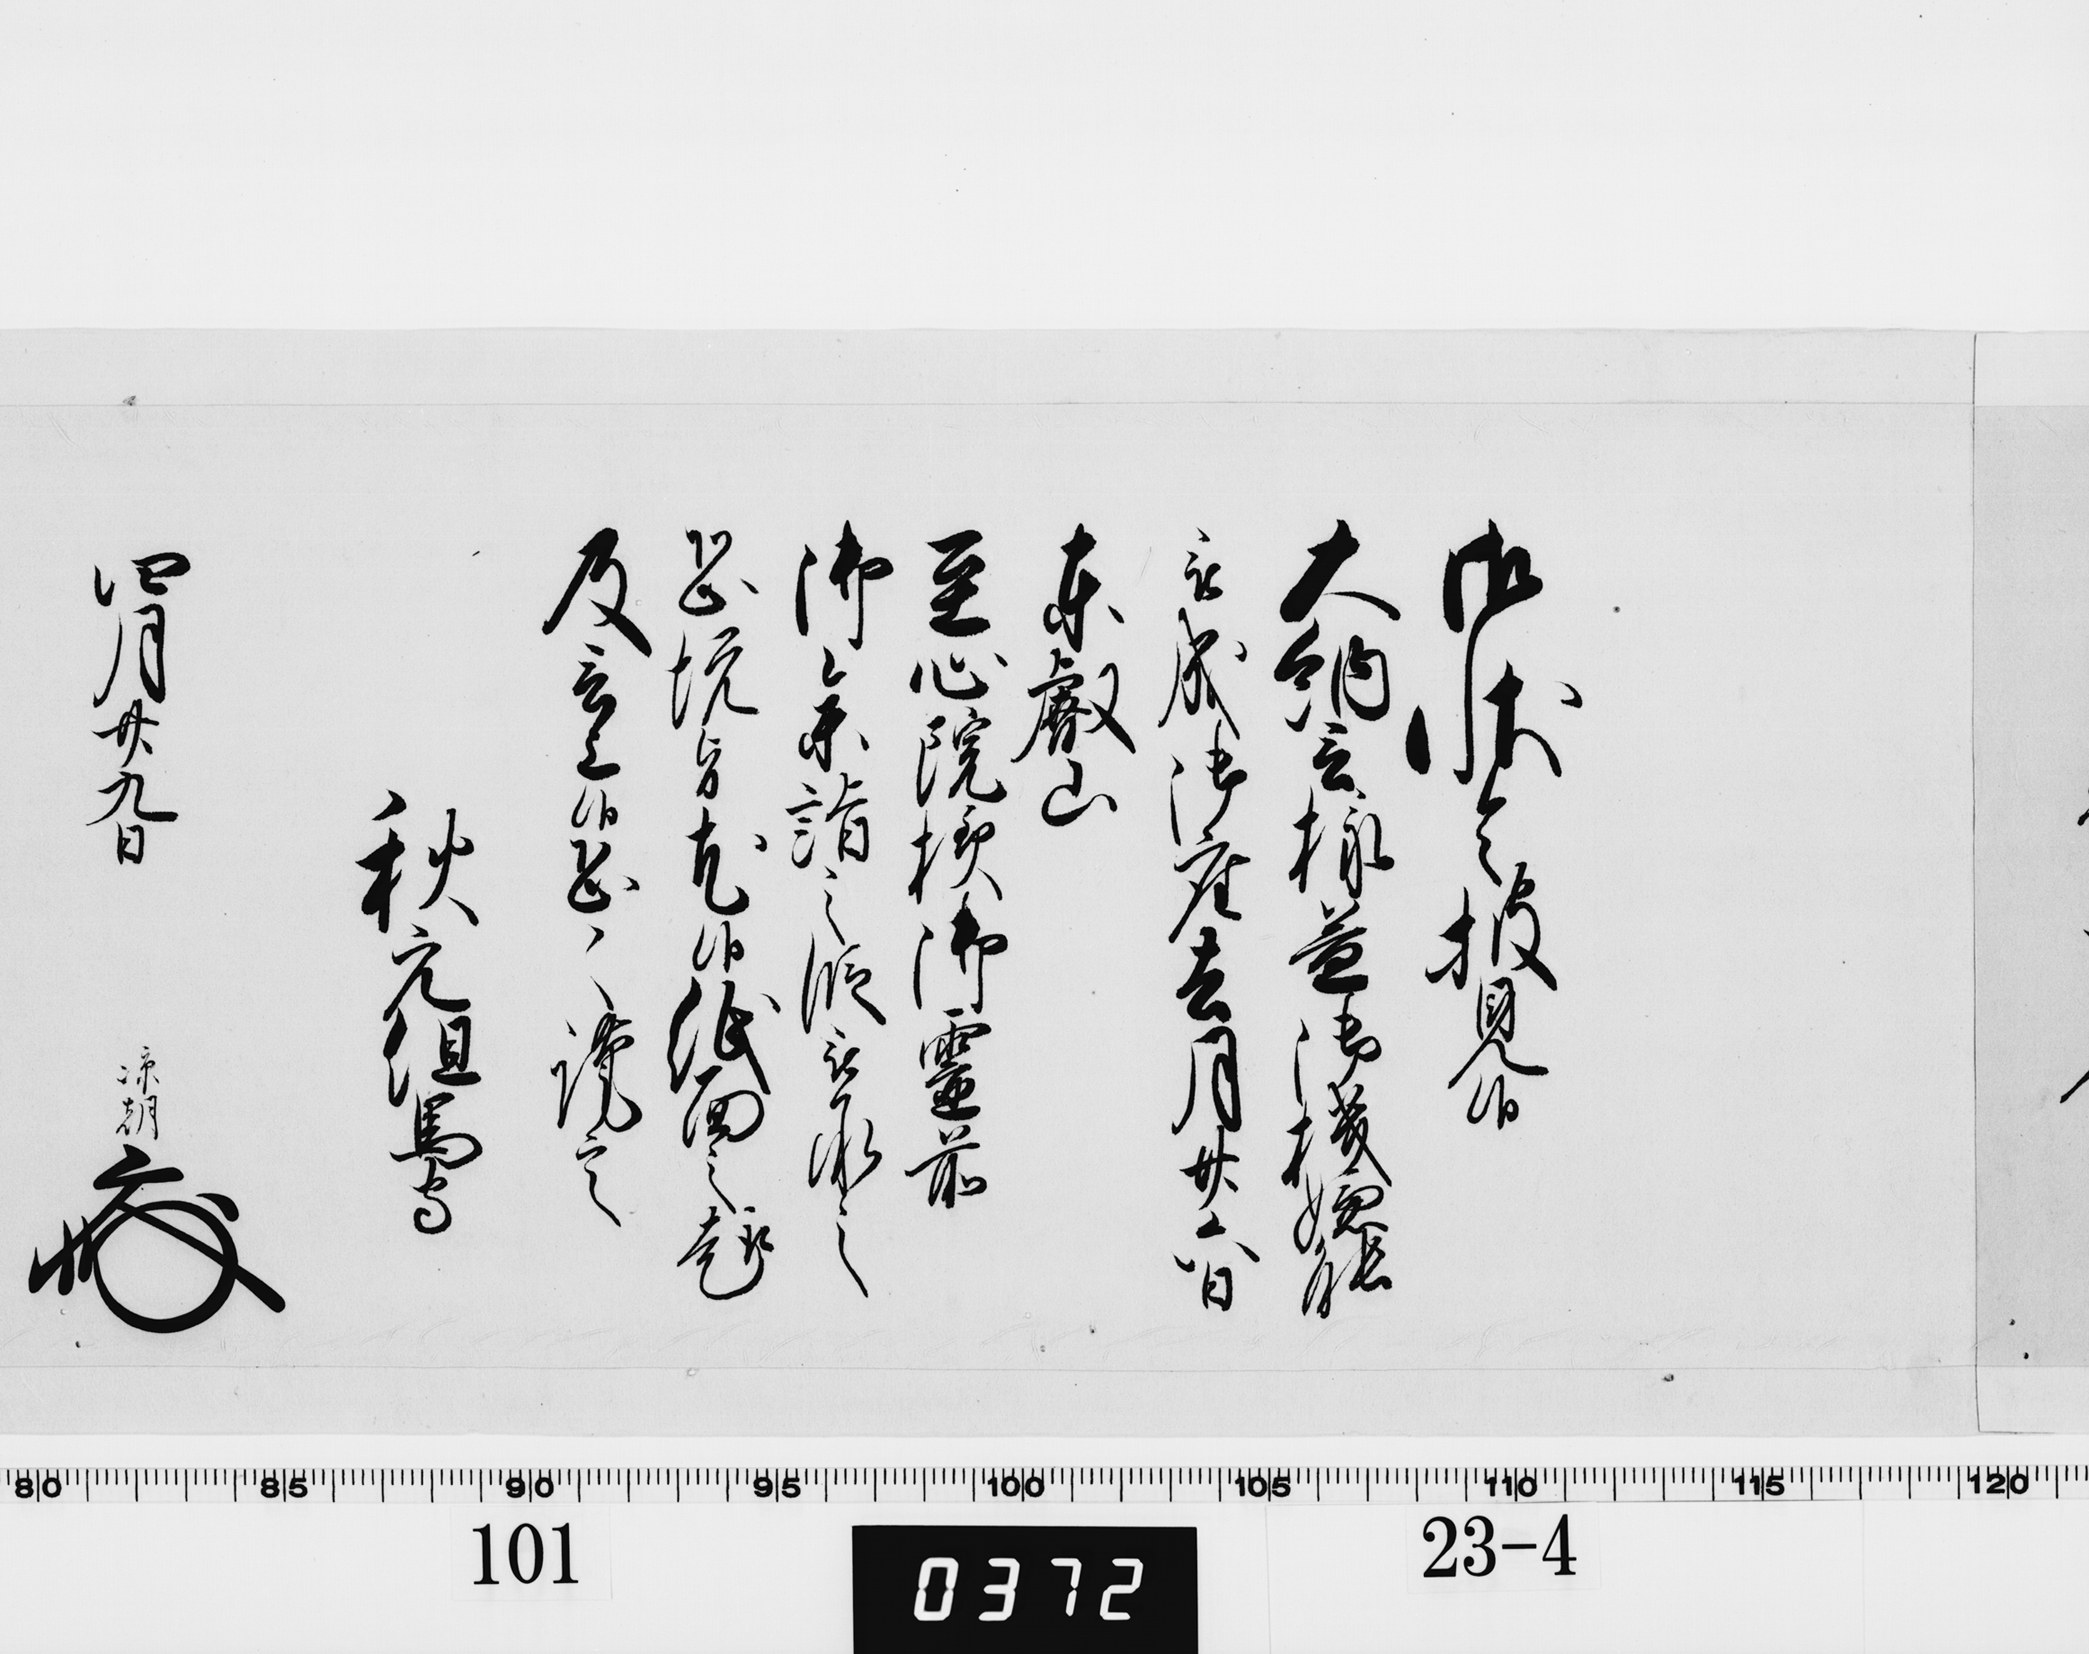 御状令披見候
大納言様益御機嫌能
被成御座去月廿六日
東叡山
至心院様御霊前
御参詣之段被承之
恐悦旨尤候紙面之趣
及言上候恐々謹言
秋元但馬守
四月廿九日
凉朝
80 85 90 95 100 105 110 115 120
101
0372
23-4